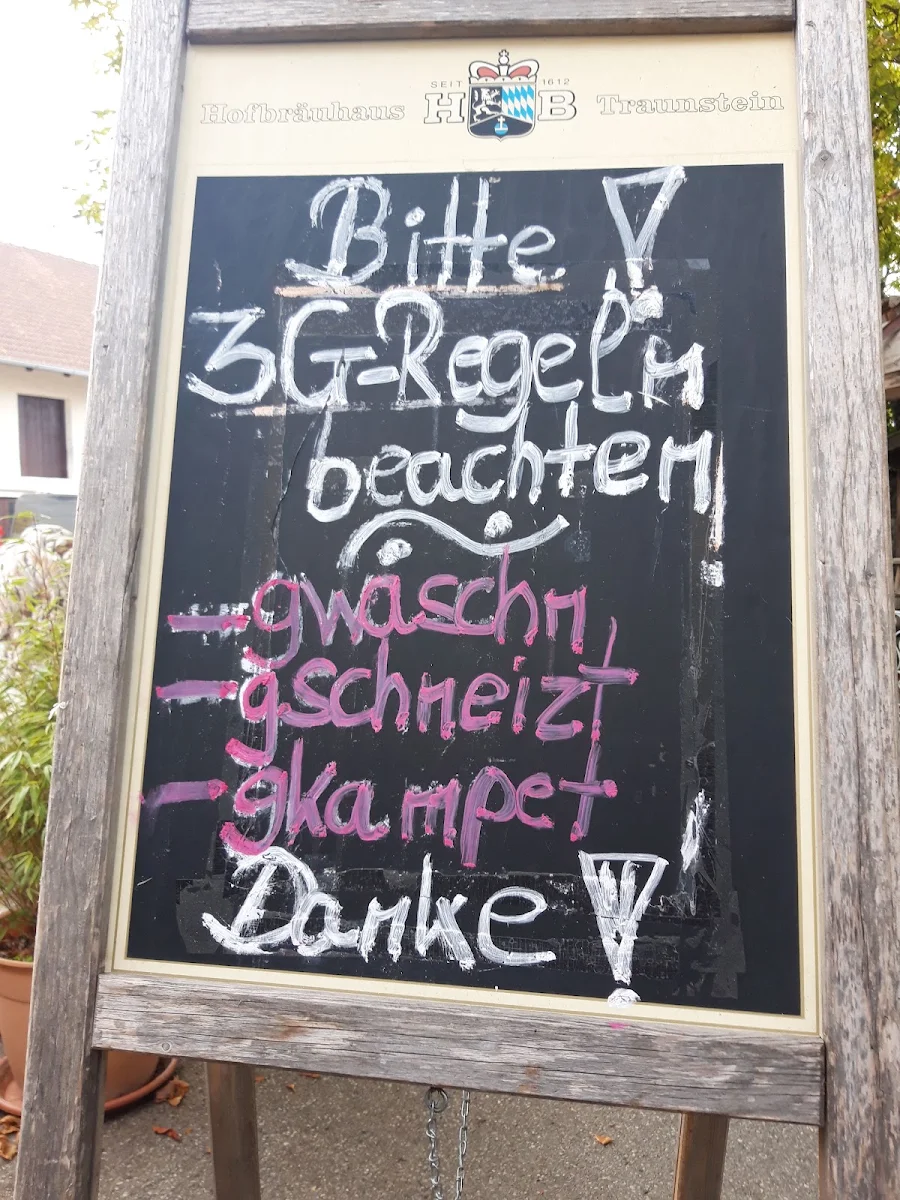 SEIT 1612
Hofbräuhaus HB Traunstein
Bitte !
3G-Regeln
beachten
- gwaschn
- gschneizt
- gkampet
Danke !